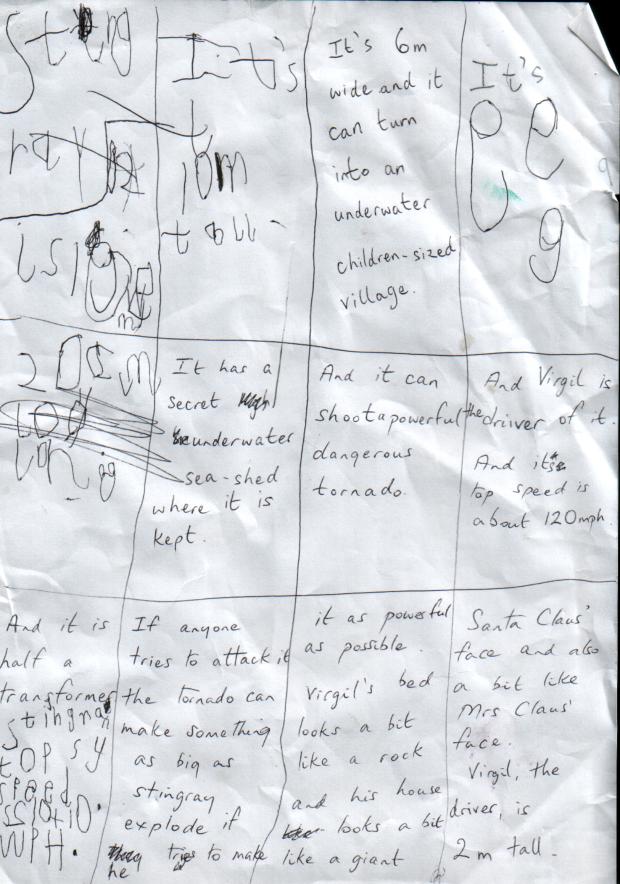 Sting
ray
is
It's
10m
tall
It's 6m
wide and it
can turn
into an
underwater
children-sized
village.
It's
20cm
long
It has a
secret
underwater
sea-shed
where it is
kept.
And it can
shoot a powerful
dangerous
tornado.
And Virgil is
the driver of it.
And its
top speed is
about 120mph.
And it is
half a
transformer
Stingray
top
speed
WPH.
If anyone
tries to attack it
the tornado can
make something
as big as
stingray
explode if
he tries to make
it as powerful
as possible.
Virgil's bed
looks a bit
like a rock
and his house
looks a bit
like a giant
Santa Claus'
face and also
a bit like
Mrs Claus'
face.
Virgil, the
driver, is
2m tall.